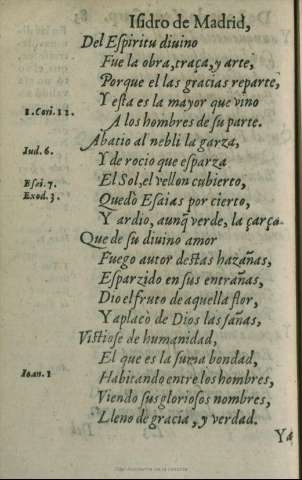 Isidro de Madrid,
Del Eſpiritu diuino
Fue la obra, traça, y arte,
Porque el las gracias reparte,
Y eſta es la mayor que vino
1. Cori. 12.
A los hombres de ſu parte.
Abatio al nebli la garza,
Iud. 6.
Y de rocio que eſparza
Eſai. 7.
El Sol, el vellon cubierto,
Exod. 3.
Quedò Eſaias por cierto,
Y ardio, aunq̃ verde, la çarça.
Que de ſu diuino amor
Fuego autor deſtas hazañas,
Eſparzido en ſus entrañas,
Dio el fruto de aquella flor,
Y aplacò de Dios las ſañas,
Viſtioſe de humanidad,
El que es la ſuma bondad,
Ioan. 1
Habitando entre los hombres,
Viendo ſus glorioſos nombres,
Lleno de gracia, y verdad.
Ya